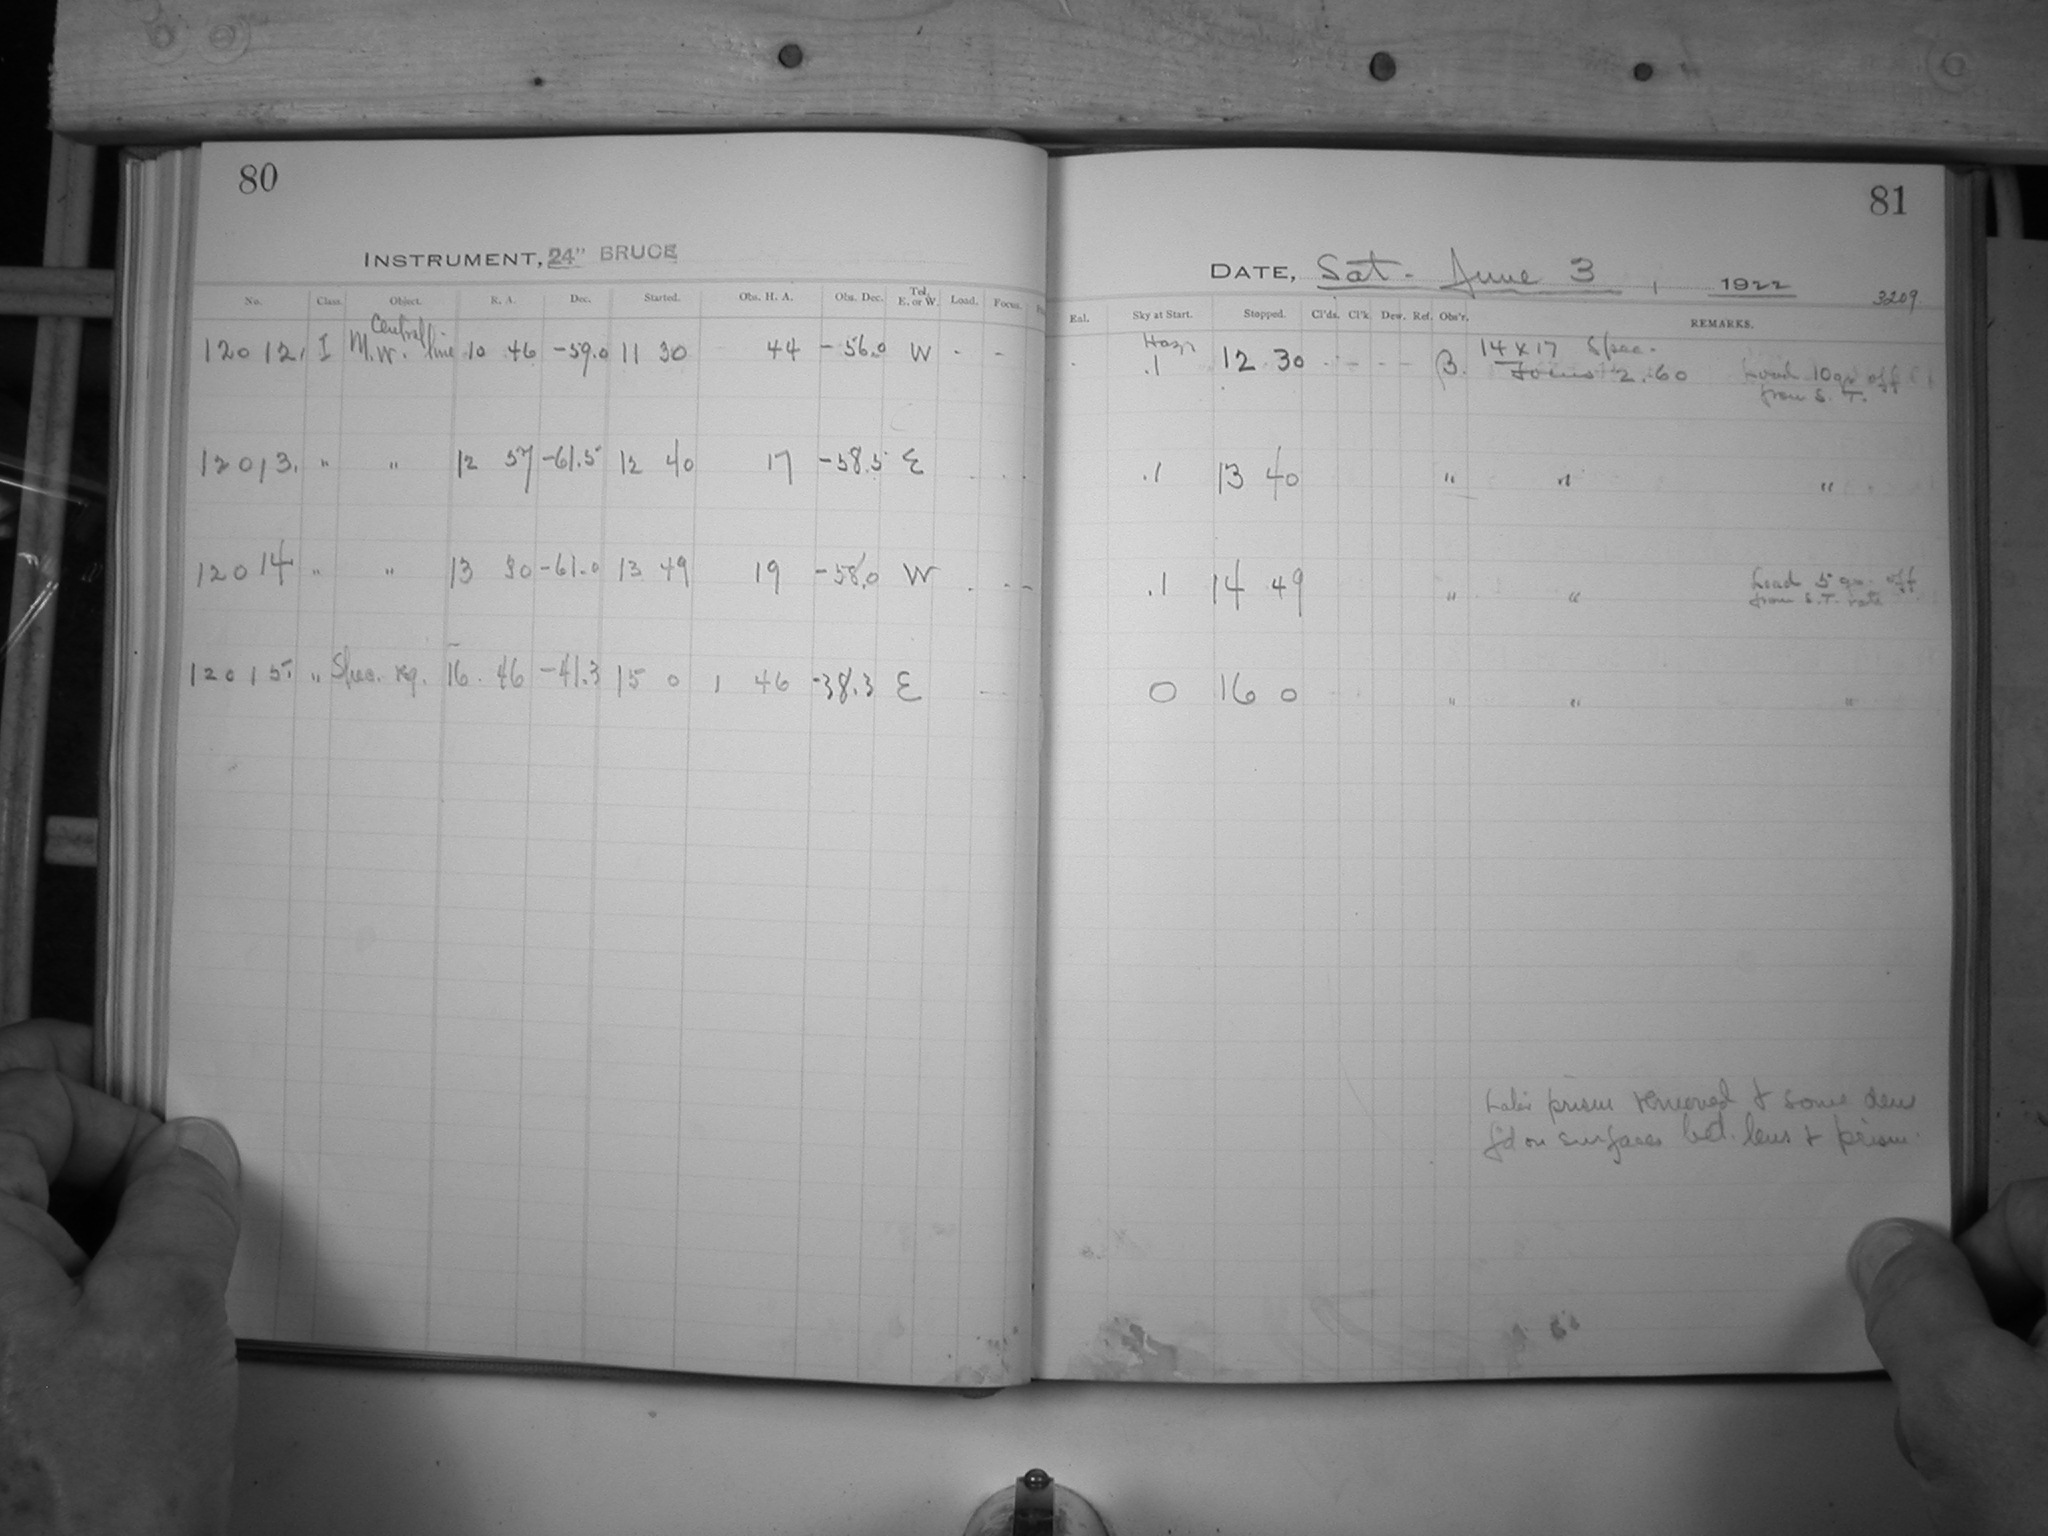 80
INSTRUMENT, 24" BRUCE
No. Class. Object. R. A. Dec. Started. Obs. H. A. Obs. Dec. Tel. E. or W. Load. Focus.
12012. I M.W. Central line 10 46 -59.0 11 30 44 -56.0 W - -
12013. " " 12 57 -61.5 12 40 17 -58.5 E
12014 " " 13 30 -61.0 13 49 19 -58.0 W
12015. " Spec. rg. 16 46 -41.3 15 0 1 46 -38.3 E
81
DATE, Sat. June 3, 1922
3209
Eal. Sky at Start. Stopped. Cl'ds. Cl'k Dew. Ref. Obs'r. REMARKS.
Hazy
.1 12 30 - - - - B. 14 x 17 Spec.
focus 2.60 Load 10 gr. off
from S. T.
.1 13 40 " " "
.1 14 49 " " Load 5 gr. off
from S.T. rate
0 16 0 " " "
Later prism removed & some dew
f'd on surfaces bet. lens & prism.